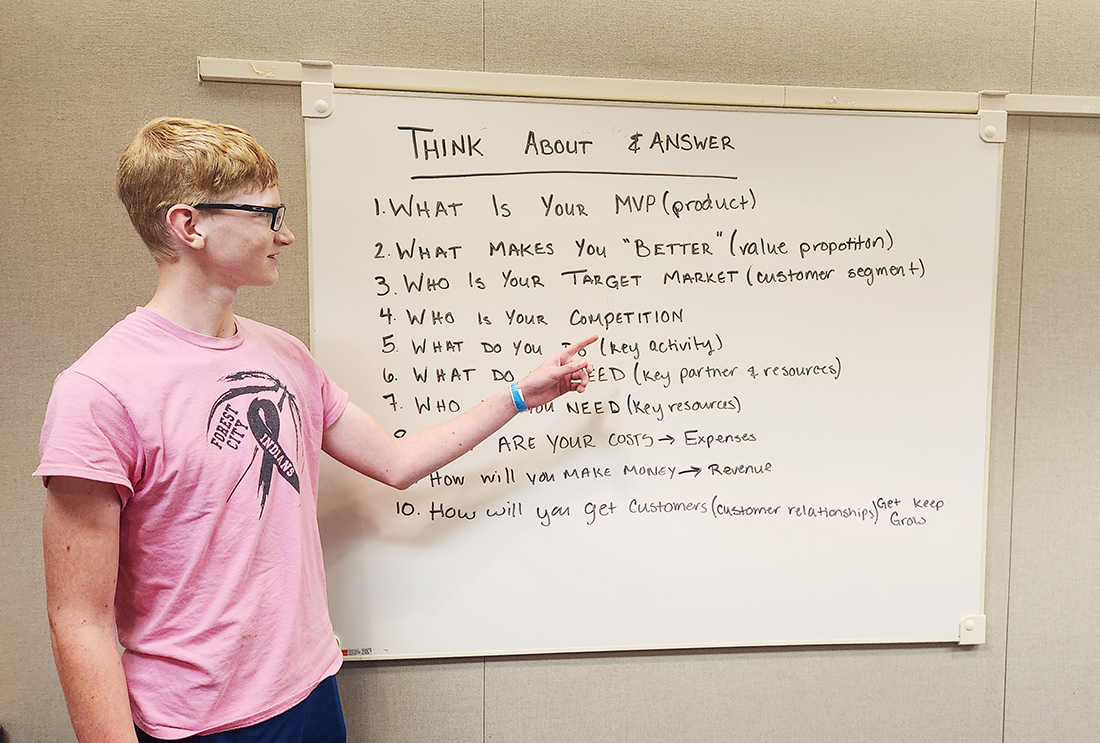 THINK ABOUT & ANSWER
1. WHAT IS YOUR MVP (product)
2. WHAT MAKES YOU "BETTER" (value propotiton)
3. WHO IS YOUR TARGET MARKET (customer segment)
4. WHO IS YOUR COMPETITION
5. WHAT DO YOU DO (key activity)
6. WHAT DO NEED (key partner & resources)
7. WHO YOU NEED (key resources)
ARE YOUR COSTS → Expenses
How will you MAKE MONEY → Revenue
10. How will you get customers (customer relationships) Get keep
Grow
FOREST
CITY
INDIANS